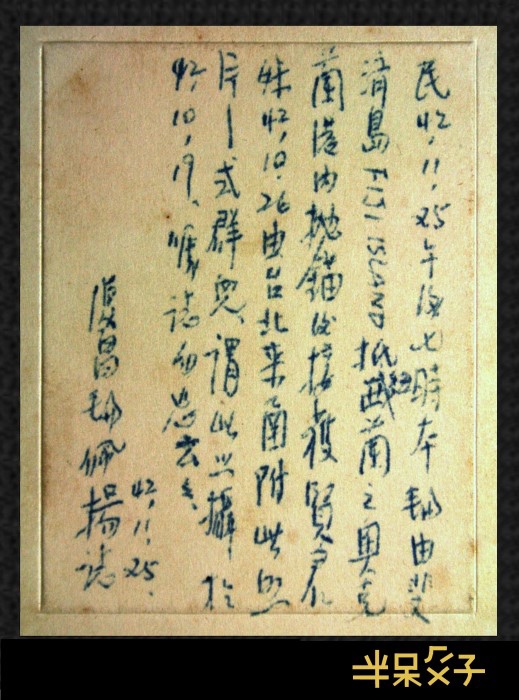 民42.11.25午後七時本輪由斐
濟島FIJI ISLAND抵西蘭之奧克
蘭港內拋錨後接獲賢
妹42.10.26由台北來函附此照
片一式群兒、謂此照攝於
42.10.19、嘱誌勿忘云云、
復昌輪佩揚誌
42.11.25.
半呆父子